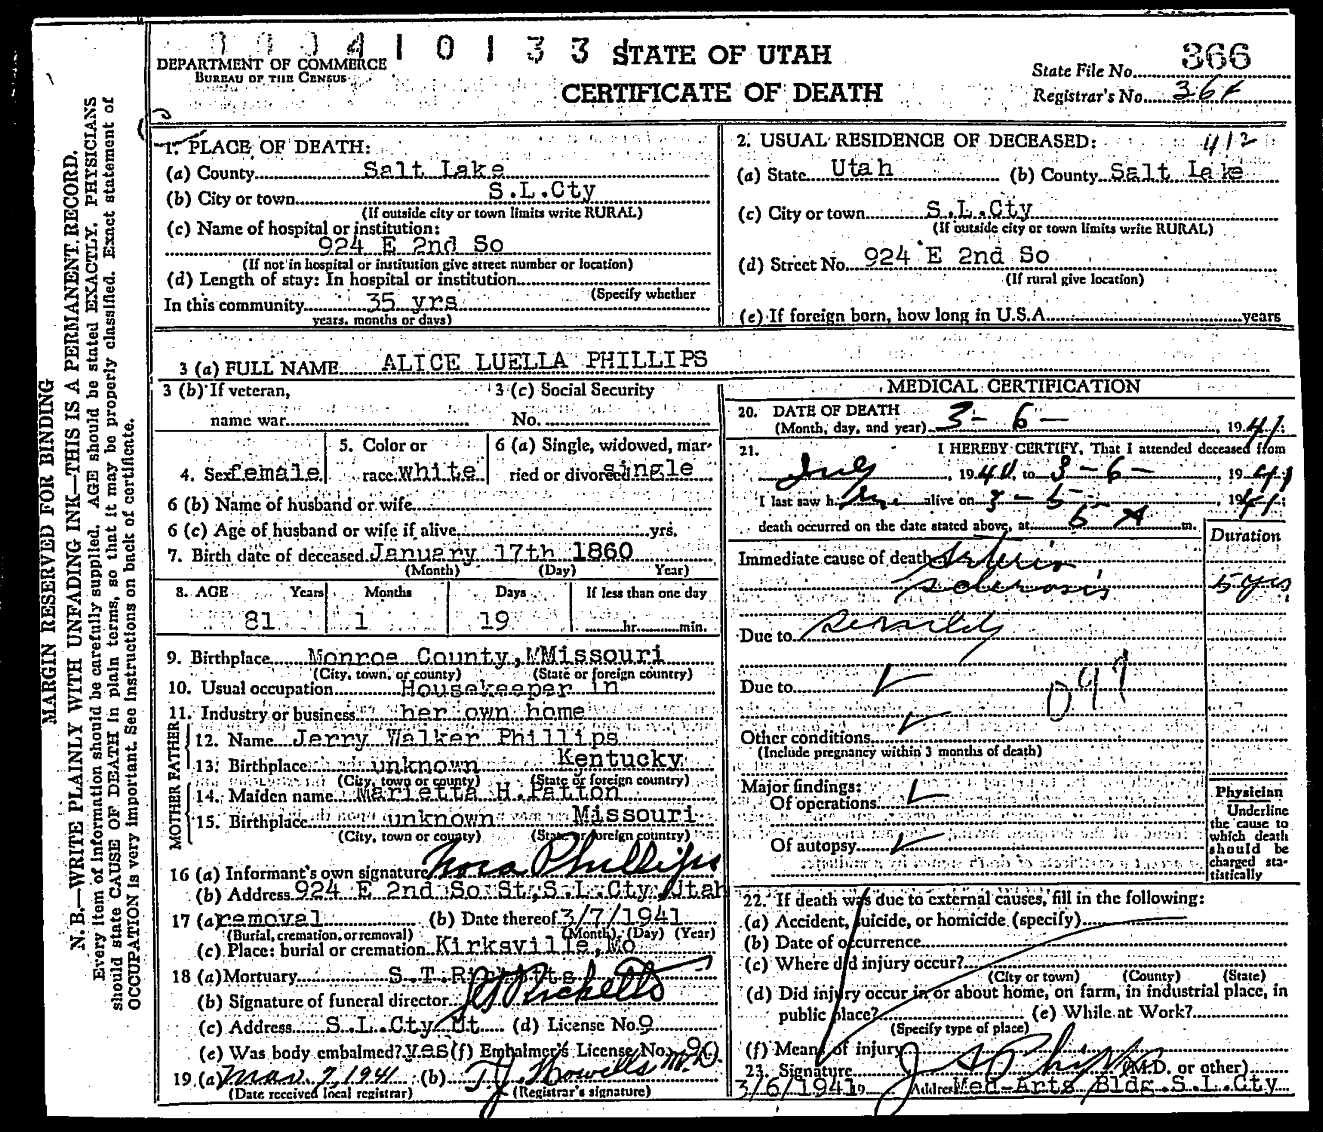 MARGIN RESERVED FOR BINDING
N. B.—WRITE PLAINLY WITH UNFADING INK—THIS IS A PERMANENT RECORD.
Every item of information should be carefully supplied. AGE should be stated EXACTLY. PHYSICIANS
should state CAUSE OF DEATH in plain terms, so that it may be properly classified. Exact statement of
OCCUPATION is very important. See instructions on back of certificate.
4 1 0 1 3 3
STATE OF UTAH
CERTIFICATE OF DEATH
DEPARTMENT OF COMMERCE
BUREAU OF THE CENSUS
State File No. 366
Registrar's No. 36
1. PLACE OF DEATH:
(a) County Salt Lake
(b) City or town S.L.Cty
(If outside city or town limits write RURAL)
(c) Name of hospital or institution:
924 E 2nd So
(If not in hospital or institution give street number or location)
(d) Length of stay: In hospital or institution
(Specify whether
In this community 35 yrs
years, months or days)
2. USUAL RESIDENCE OF DECEASED:
412
(a) State Utah (b) County Salt Lake
(c) City or town S.L.Cty
(If outside city or town limits write RURAL)
(d) Street No. 924 E 2nd So
(If rural give location)
(e) If foreign born, how long in U.S.A. years
3 (a) FULL NAME ALICE LUELLA PHILLIPS
3 (b) If veteran,
name war
3 (c) Social Security
No.
4. Sex female
5. Color or
race white
6 (a) Single, widowed, mar-
ried or divorced single
6 (b) Name of husband or wife
6 (c) Age of husband or wife if alive yrs.
7. Birth date of deceased January 17th 1860
(Month) (Day) Year)
8. AGE Years Months Days If less than one day
81 1 19 hr. min.
9. Birthplace Monroe County, Missouri
(City, town, or county) (State or foreign country)
10. Usual occupation Housekeeper in
11. Industry or business her own home
FATHER
12. Name Jerry Walker Phillips
13. Birthplace unknown Kentucky
(City, town or county) (State or foreign country)
MOTHER
14. Maiden name Marietta H.Patton
15. Birthplace unknown Missouri
(City, town or county) (State or foreign country)
16 (a) Informant's own signature Nora Phillips
(b) Address 924 E 2nd So St,S.L.Cty Utah
17 (a) removal (b) Date thereof 3/7/1941
(Burial, cremation, or removal) (Month) (Day) (Year)
(c) Place: burial or cremation Kirksville, Mo
18 (a) Mortuary S.T.Ricketts
(b) Signature of funeral director Ricketts
(c) Address S.L.Cty Ut (d) License No. 9
(e) Was body embalmed? yes (f) Embalmer's License No. 90
19 (a) Mar. 7, 1941 (b) TJ Howells M.D.
(Date received local registrar) (Registrar's signature)
MEDICAL CERTIFICATION
20. DATE OF DEATH
(Month, day, and year) 3 - 6 - , 1941
21. I HEREBY CERTIFY, That I attended deceased from
July , 1940, to 3 - 6 - , 1941
I last saw h alive on 3 - 5 - , 1941
death occurred on the date stated above, at 6 A m.
Duration
Immediate cause of death Arterio
sclerosis 5 yrs
Due to Senility
Due to
097
Other conditions
(Include pregnancy within 3 months of death)
Major findings:
Of operations
Of autopsy
Physician
Underline
the cause to
which death
should be
charged sta-
tistically
22. If death was due to external causes, fill in the following:
(a) Accident, suicide, or homicide (specify)
(b) Date of occurrence
(c) Where did injury occur?
(City or town) (County) (State)
(d) Did injury occur in or about home, on farm, in industrial place, in
public place? (e) While at Work?
(Specify type of place)
(f) Means of injury
23. Signature (M.D. or other)
3/6/1941 Address Med-Arts Bldg.S.L.Cty